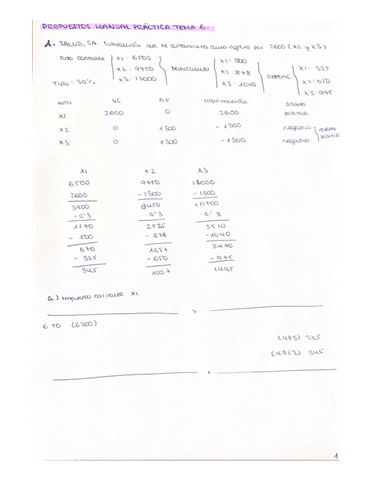 PROPUESTOS MANUAL PRÁCTICA TEMA 6
1. SALUD, SA. Subvención que se contabiliza como ingreso por 2600 (X1 y X3)
Rdo contable { X1: 6500 } { X1: 500 } { X1: 325
X2: 9750 X2: 878 X2: 650
Tipo: 30% X3: 13000 X3: 1040 X3: 975
AÑO VC B.F Liquidación Saldo
X1 2600 0 2600 positivo
X2 0 1300 -1300 negativo
X3 0 1300 -1300 negativo
X1 X2 X3
6500 9750 13000
2600 -1300 -1300
3900 8450 11700
·0'3 ·0'3 ·0'3
1170 2535 3510
- 500 - 878 -1040
670 1657 2470
- 325 - 650 - 975
345 1007 1495
a) Impuesto corriente X1
670 (6300)
(473) 325
(4752) 345
1